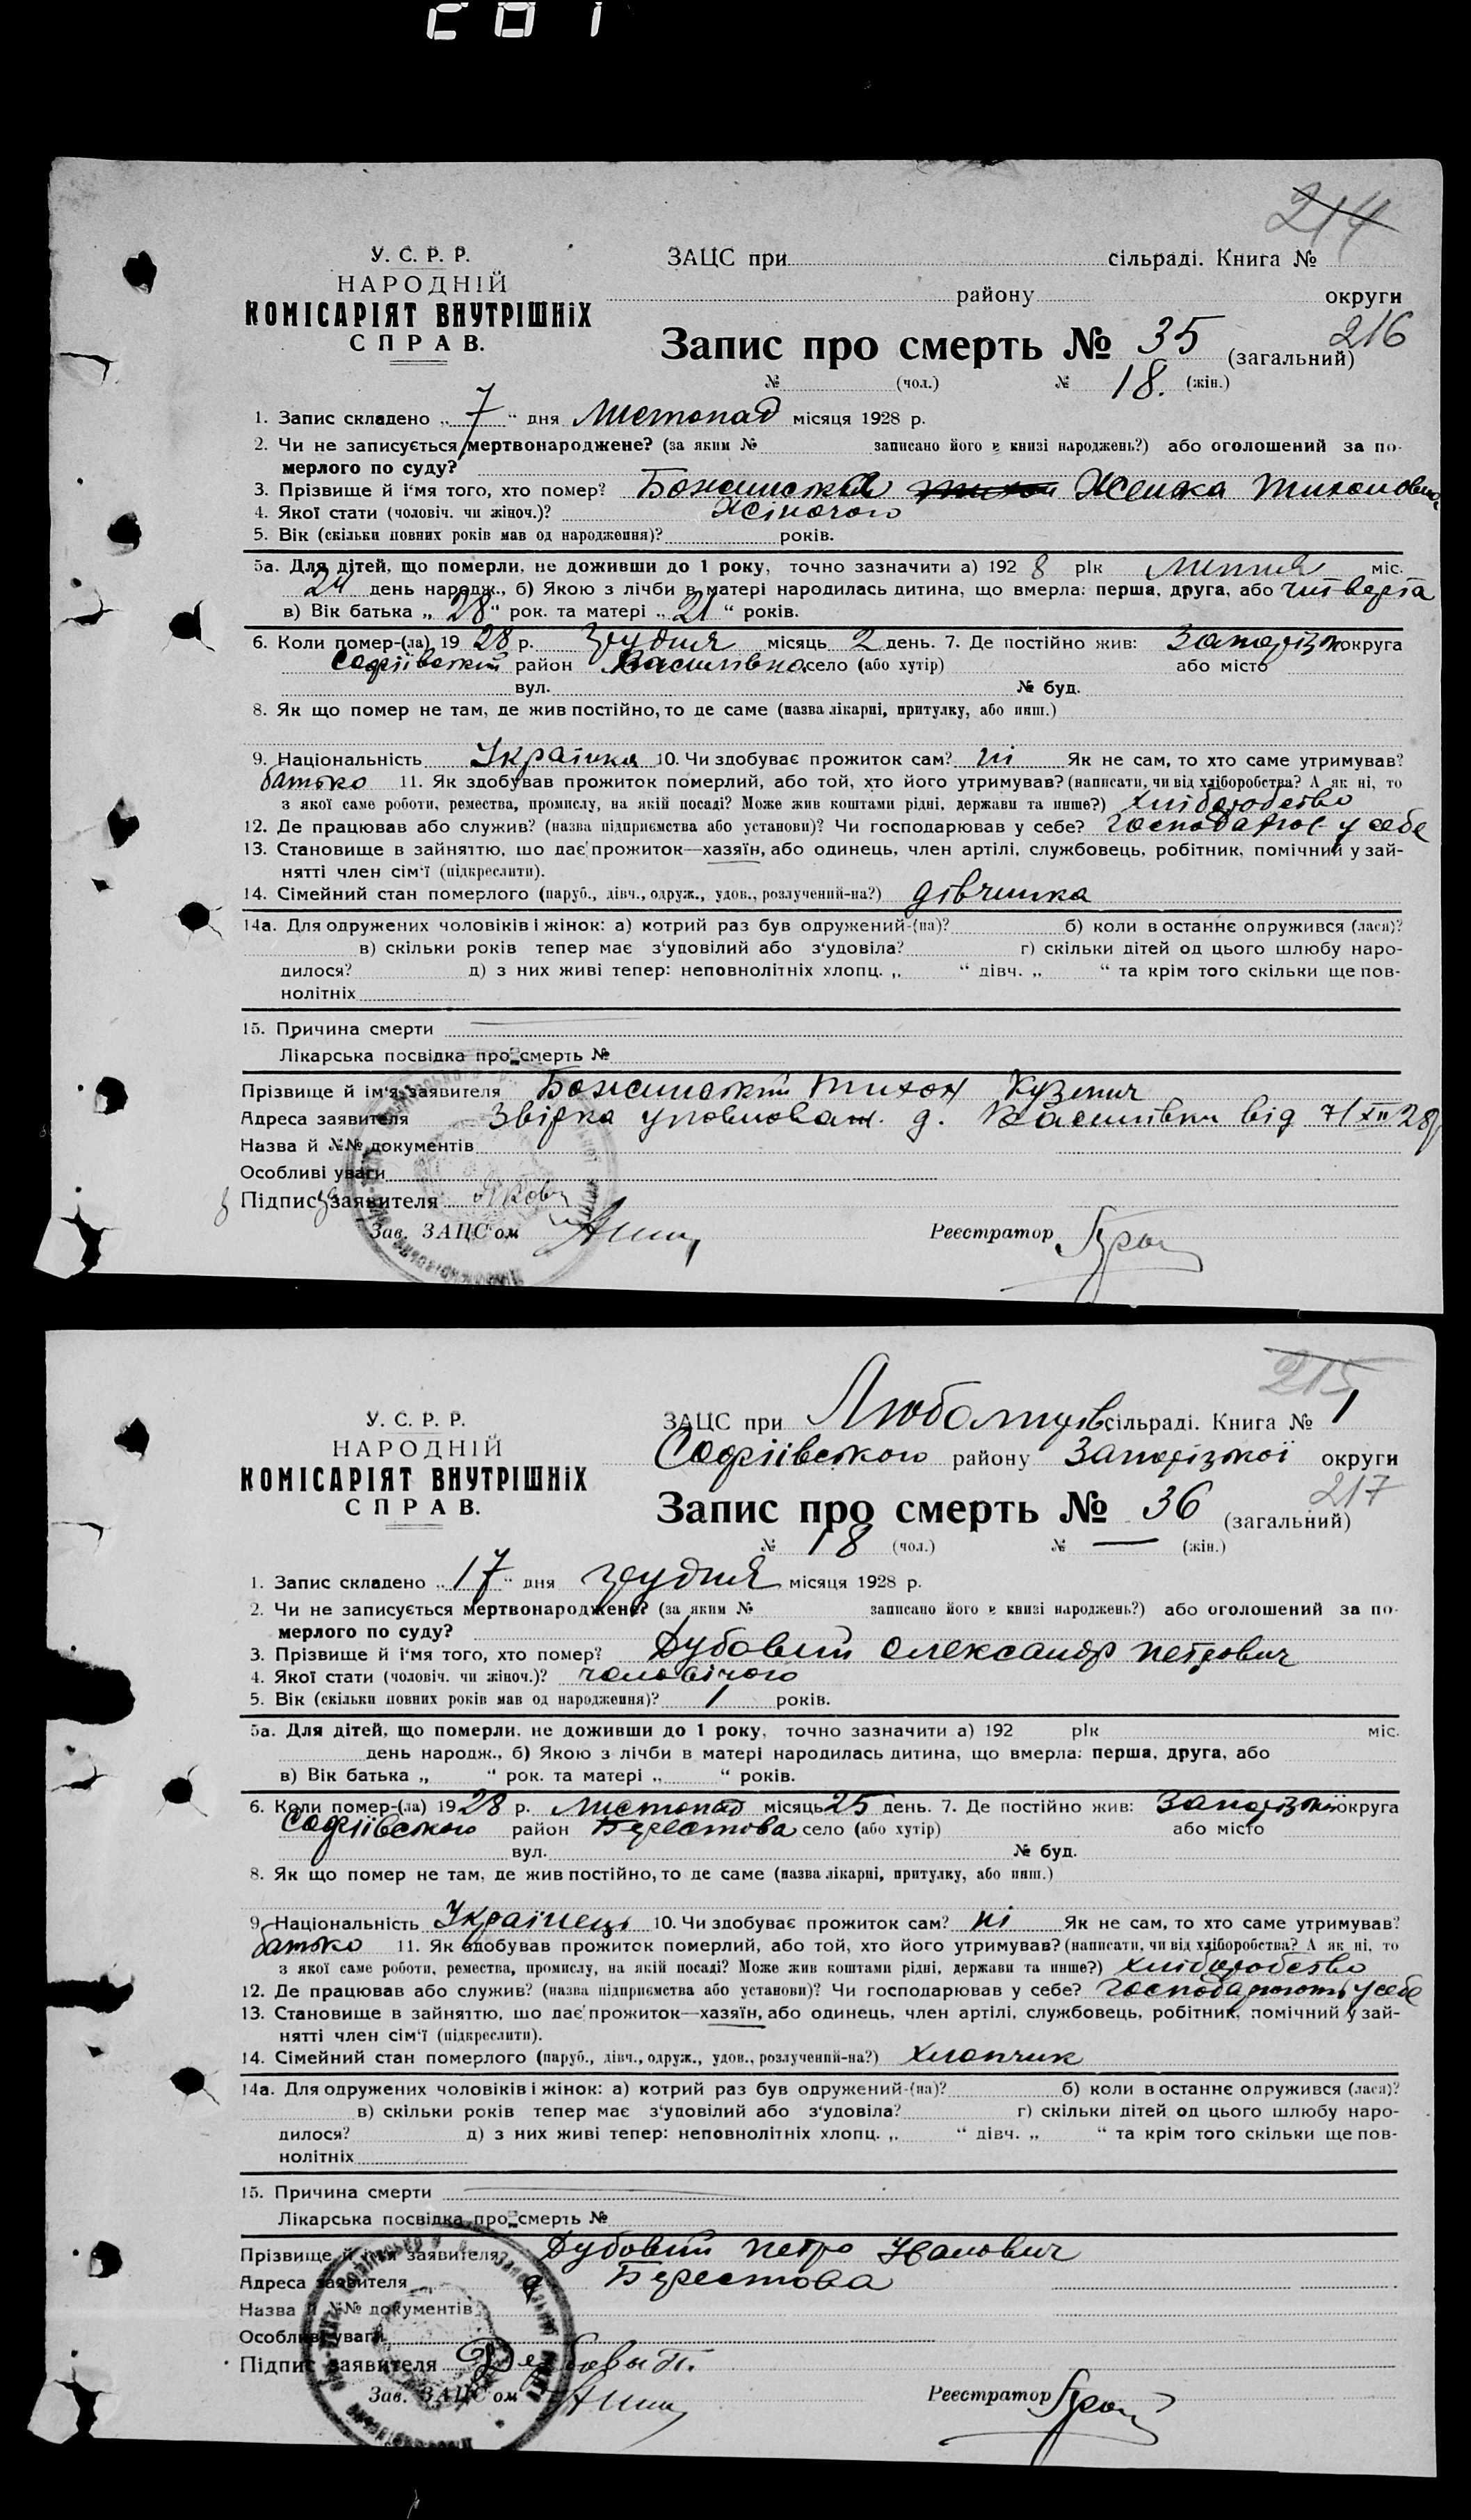 214
У. С. Р. Р.
НАРОДНІЙ
КОМІСАРІЯТ ВНУТРІШНІХ
СПРАВ.
ЗАЦС при сільраді. Книга №
району округи
216
Запис про смерть № 35 (загальний)
№ (чол.) № 18. (жін.)
1. Запис складено „ 7 “ дня Листопад місяця 1928 р.
2. Чи не записується мертвонароджене? (за яким № записано його в книзі народжень?) або оголошений за по-
мерлого по суду?
3. Прізвище й і'мя того, хто помер? Тихоновна
4. Якої стати (чоловіч. чи жіноч.)? Жіночого
5. Вік (скільки повних років мав од народження)? років.
5а. Для дітей, що померли, не доживши до 1 року, точно зазначити а) 192 8 рік Липня міс.
24 день народж., б) Якою з лічби в матері народилась дитина, що вмерла: перша, друга, або четверта
в) Вік батька „ 28 “ рок. та матері „ 21 “ років.
6. Коли помер-(ла) 19 28 р. Грудня місяць 2 день. 7. Де постійно жив: Запоріж округа
Софіївский район Василівка село (або хутір) або місто
вул. № буд.
8. Як що помер не там, де жив постійно, то де саме (назва лікарні, притулку, або инш.)
9. Національність Українка 10. Чи здобуває прожиток сам? ні Як не сам, то хто саме утримував?
батько 11. Як здобував прожиток померлий, або той, хто його утримував? (написати, чи від хліборобства? А як ні, то
з якої саме роботи, ремества, промислу, на якій посаді? Може жив коштами рідні, держави та инше?) хліборобство
12. Де працював або служив? (назва підприємства або установи)? Чи господарював у себе? господарює у себе
13. Становище в зайняттю, що дає прожиток—хазяїн, або одинець, член артілі, службовець, робітник, помічний у зай-
нятті член сім'ї (підкреслити).
14. Сімейний стан померлого (паруб., дівч., одруж., удов., розлучений-на?) дівчинка
14а. Для одружених чоловіків і жінок: а) котрий раз був одружений-(на)? б) коли в останнє одружився (лася)?
в) скільки років тепер має з'удовілий або з'удовіла? г) скільки дітей од цього шлюбу наро-
дилося? д) з них живі тепер: неповнолітніх хлопц. „ “ дівч. „ “ та крім того скільки ще пов-
нолітніх
15. Причина смерти
Лікарська посвідка про смерть №
Прізвище й ім'я заявителя Тихон Кузьмич
Адреса заявителя Звірка уповноваж. д. Василівки від 7/XII 28р
Назва й №№ документів
Особливі уваги
Підпис заявителя
Зав. ЗАЦС'ом Реєстратор
215
У. С. Р. Р.
НАРОДНІЙ
КОМІСАРІЯТ ВНУТРІШНІХ
СПРАВ.
ЗАЦС при сільраді. Книга № 1
Софіївського району Запорізької округи
217
Запис про смерть № 36 (загальний)
№ 18 (чол.) № — (жін.)
1. Запис складено „ 17 “ дня грудня місяця 1928 р.
2. Чи не записується мертвонароджене? (за яким № записано його в книзі народжень?) або оголошений за по-
мерлого по суду?
3. Прізвище й і'мя того, хто помер? Дубовий Олександр Петрович
4. Якої стати (чоловіч. чи жіноч.)? чоловічого
5. Вік (скільки повних років мав од народження)? 1 років.
5а. Для дітей, що померли, не доживши до 1 року, точно зазначити а) 192 рік міс.
день народж., б) Якою з лічби в матері народилась дитина, що вмерла: перша, друга, або
в) Вік батька „ “ рок. та матері „ “ років.
6. Коли помер-(ла) 19 28 р. Листопад місяць 25 день. 7. Де постійно жив: Запорізької округа
Софіївського район Берестова село (або хутір) або місто
вул. № буд.
8. Як що помер не там, де жив постійно, то де саме (назва лікарні, притулку, або инш.)
9. Національність Українець 10. Чи здобуває прожиток сам? ні Як не сам, то хто саме утримував?
батько 11. Як здобував прожиток померлий, або той, хто його утримував? (написати, чи від хліборобства? А як ні, то
з якої саме роботи, ремества, промислу, на якій посаді? Може жив коштами рідні, держави та инше?) хліборобство
12. Де працював або служив? (назва підприємства або установи)? Чи господарював у себе? господарюють у себе
13. Становище в зайняттю, що дає прожиток—хазяїн, або одинець, член артілі, службовець, робітник, помічний у зай-
нятті член сім'ї (підкреслити).
14. Сімейний стан померлого (паруб., дівч., одруж., удов., розлучений-на?) хлопчик
14а. Для одружених чоловіків і жінок: а) котрий раз був одружений-(на)? б) коли в останнє одружився (лася)?
в) скільки років тепер має з'удовілий або з'удовіла? г) скільки дітей од цього шлюбу наро-
дилося? д) з них живі тепер: неповнолітніх хлопц. „ “ дівч. „ “ та крім того скільки ще пов-
нолітніх
15. Причина смерти
Лікарська посвідка про смерть №
Прізвище й ім'я заявителя Дубовий Петро Иванович
Адреса заявителя д Берестова
Назва й №№ документів
Особливі уваги
Підпис заявителя
Зав. ЗАЦС'ом Реєстратор